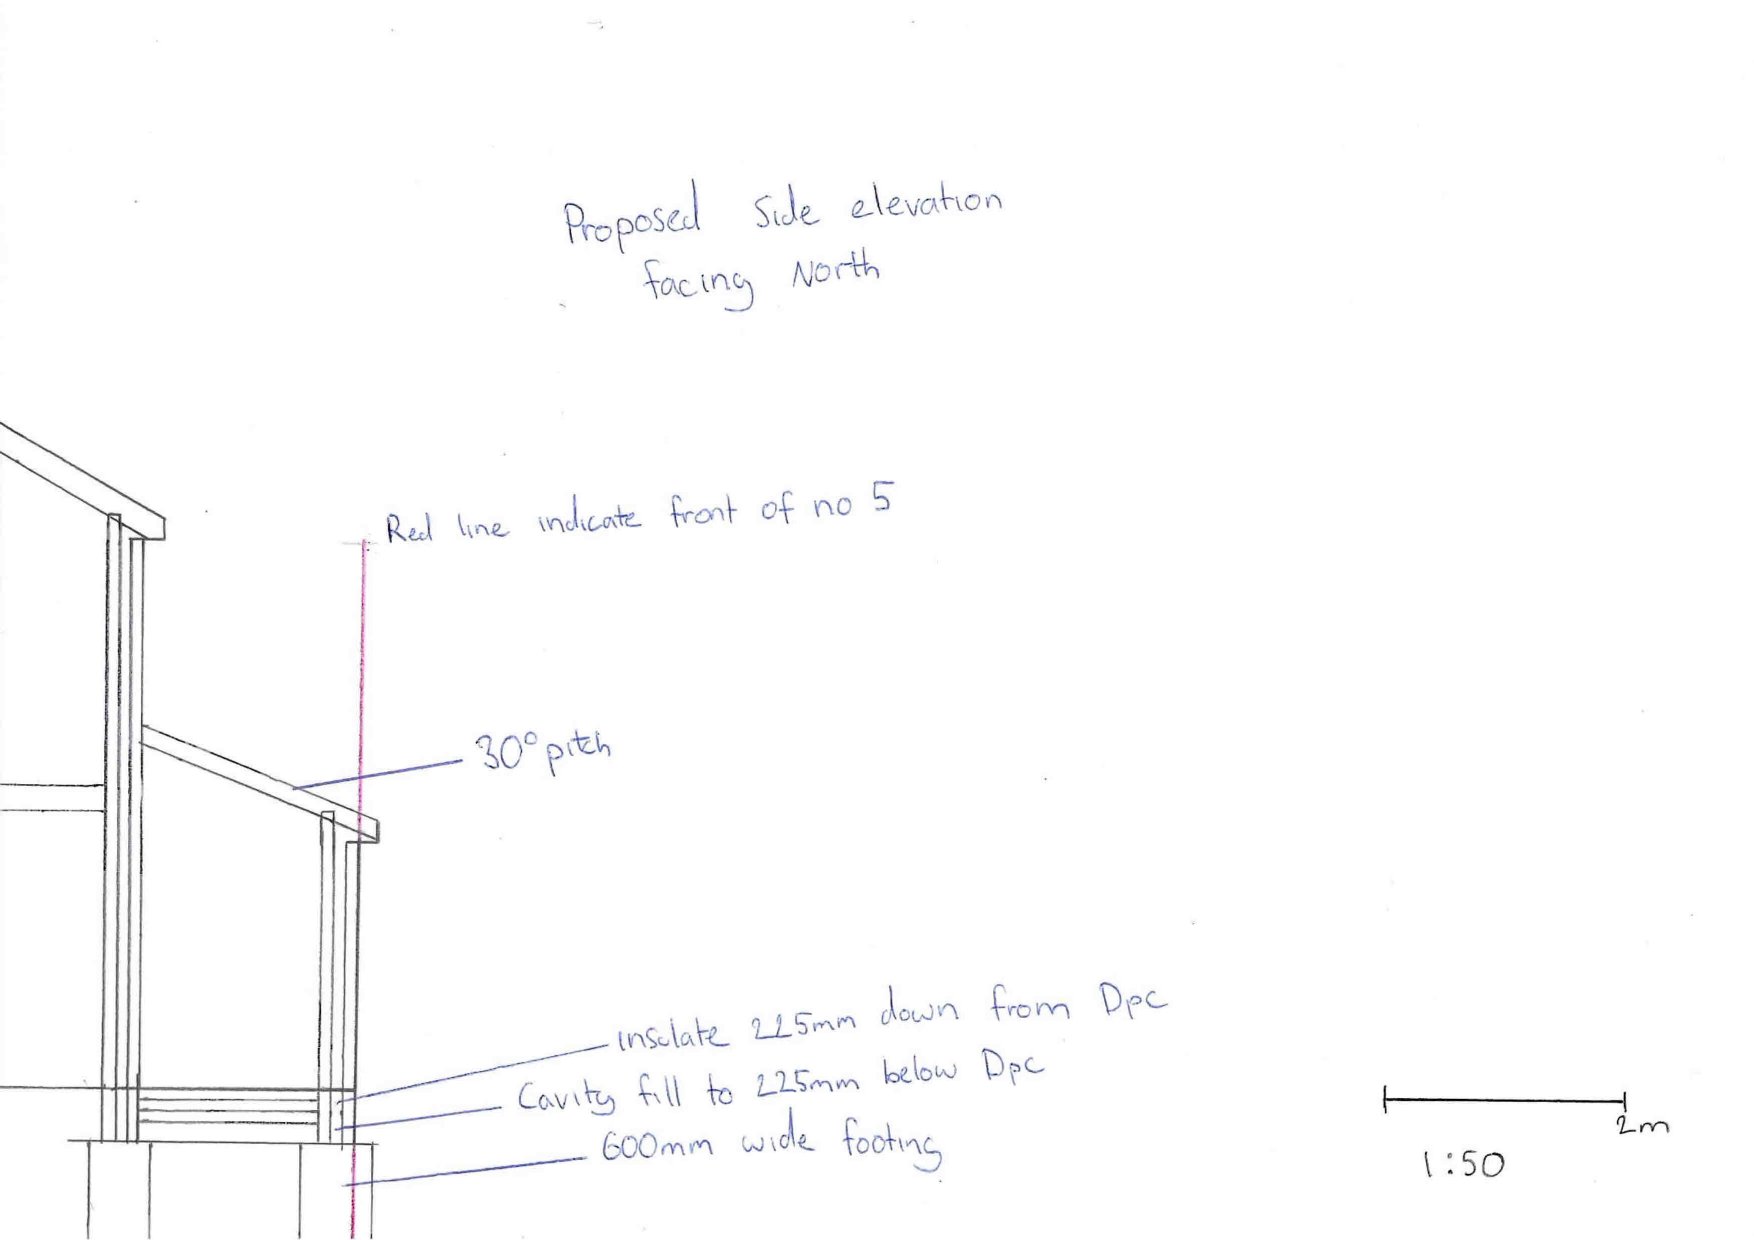 Proposed Side elevation
facing North
Red line indicate front of no 5
30° pitch
insulate 225mm down from Dpc
Cavity fill to 225mm below Dpc
600mm wide footing
2m
1:50